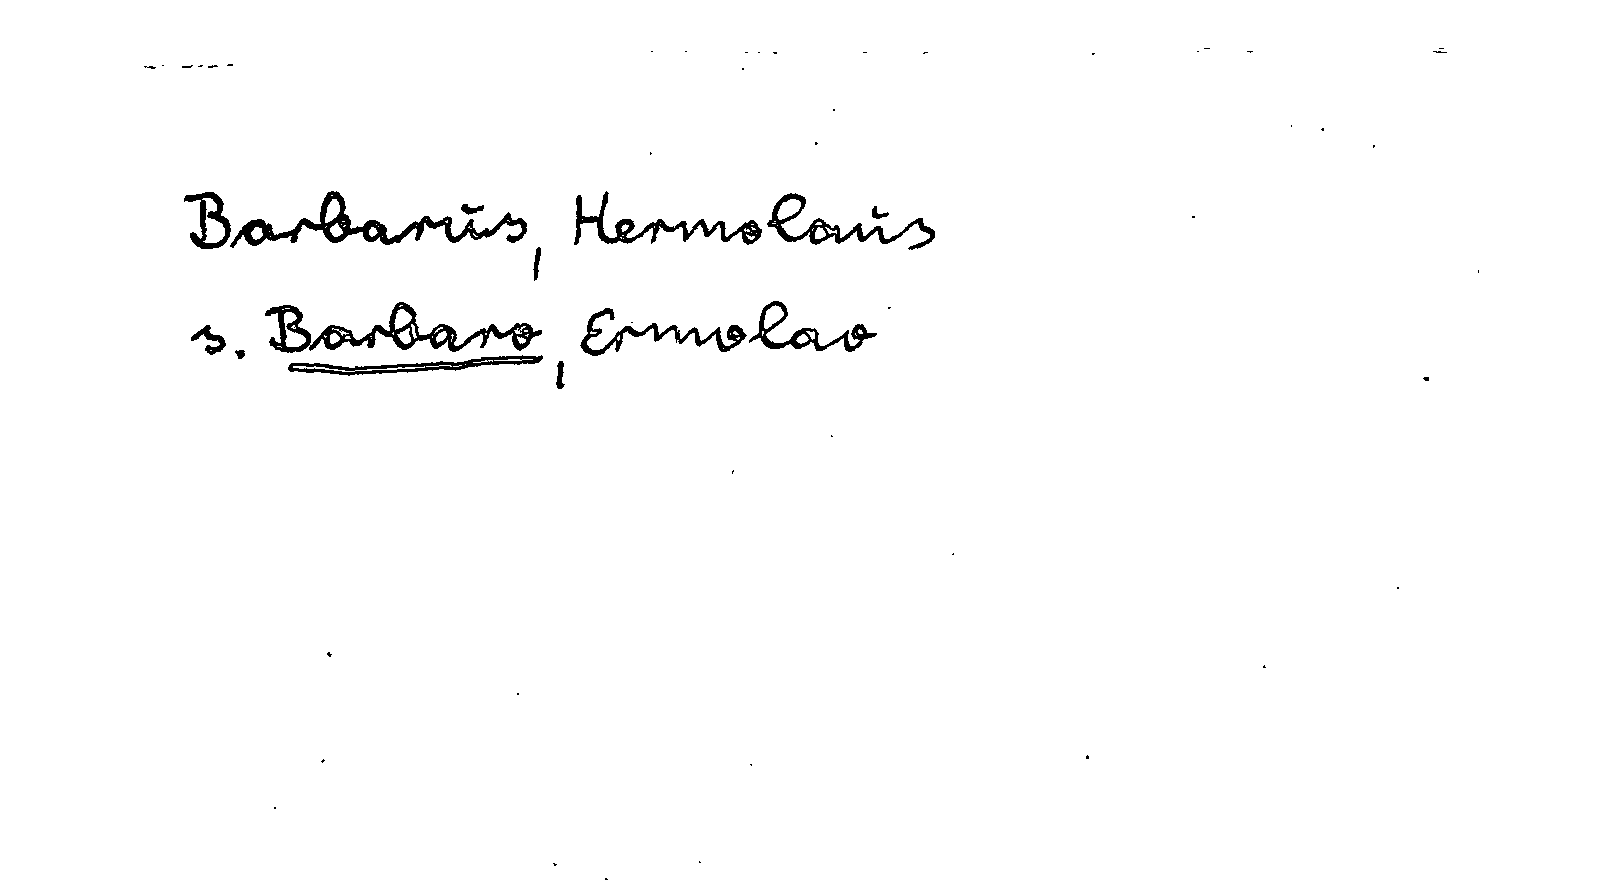 Barbarus, Hermolaus
s. Barbaro, Ermolao